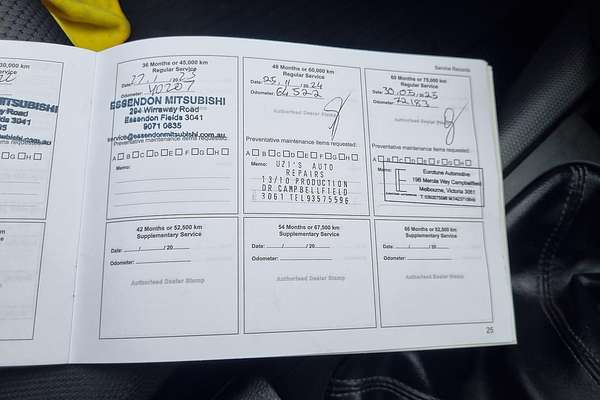 Service Records
30,000 km
Service
MITSUBISHI
Road
3041
36 Months or 45,000 km
Regular Service
Date: 27.1.2023
Odometer: 40207
ESSENDON MITSUBISHI
294 Wirraway Road
Essendon Fields 3041
9071 0835
service@essendonmitsubishi.com.au
Preventative maintenance items requested:
A B C D E F G H
Memo:
48 Months or 60,000 km
Regular Service
Date: 25.11.2024
Odometer: 64522
Authorised Dealer Stamp
Preventative maintenance items requested:
A B C D E F G H
Memo:
UZI'S AUTO
REPAIRS
13/10 PRODUCTION
DR CAMPBELLFIELD
3061 TEL93575596
60 Months or 75,000 km
Regular Service
Date: 30.05.2025
Odometer: 72183
Authorised Dealer Stamp
Preventative maintenance items requested:
A B C D E F G H
Memo:
Eurotune Automotive
Melbourne, Victoria 3061
42 Months or 52,500 km
Supplementary Service
Date: / / 20
Odometer:
Authorised Dealer Stamp
54 Months or 67,500 km
Supplementary Service
Date: / / 20
Odometer:
Authorised Dealer Stamp
Supplementary Service
Date: / / 20
Odometer:
Authorised Dealer Stamp
25